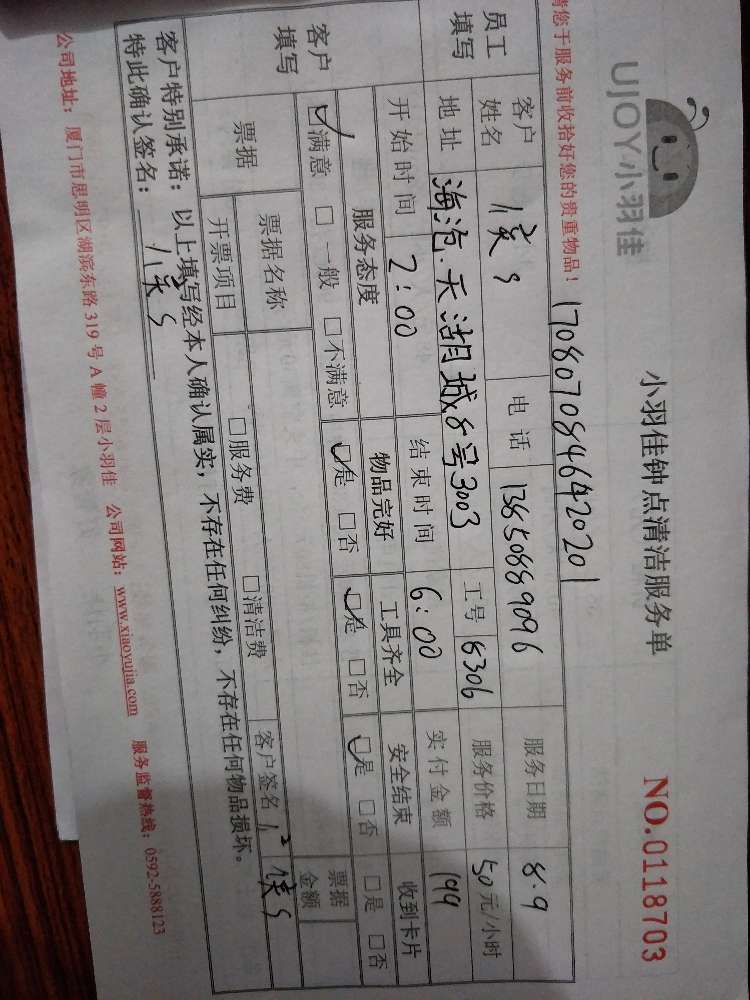 UJOY小羽佳
小羽佳钟点清洁服务单
NO.0118703
请您于服务前收拾好您的贵重物品!
170807084642020
员工填写
客户姓名
电话 13850889096
服务日期 8.9
地址 海沧.天湖城8号3003
工号 8306
服务价格 50元/小时
开始时间 2:00
结束时间 6:00
实付金额 199
客户填写
服务态度 物品完好 工具齐全 安全结束 收到卡片
☑满意 □一般 □不满意 ☑是 □否 ☑是 □否 ☑是 □否 □是 □否
票据
票据名称
票据金额
开票项目 □服务费 □清洁费
客户签名
客户特别承诺:以上填写经本人确认属实,不存在任何纠纷,不存在任何物品损坏。
特此确认签名:
公司地址:厦门市思明区湖滨东路319号A幢2层小羽佳 公司网站:www.xiaoyujia.com 服务监督热线:0592-5888123